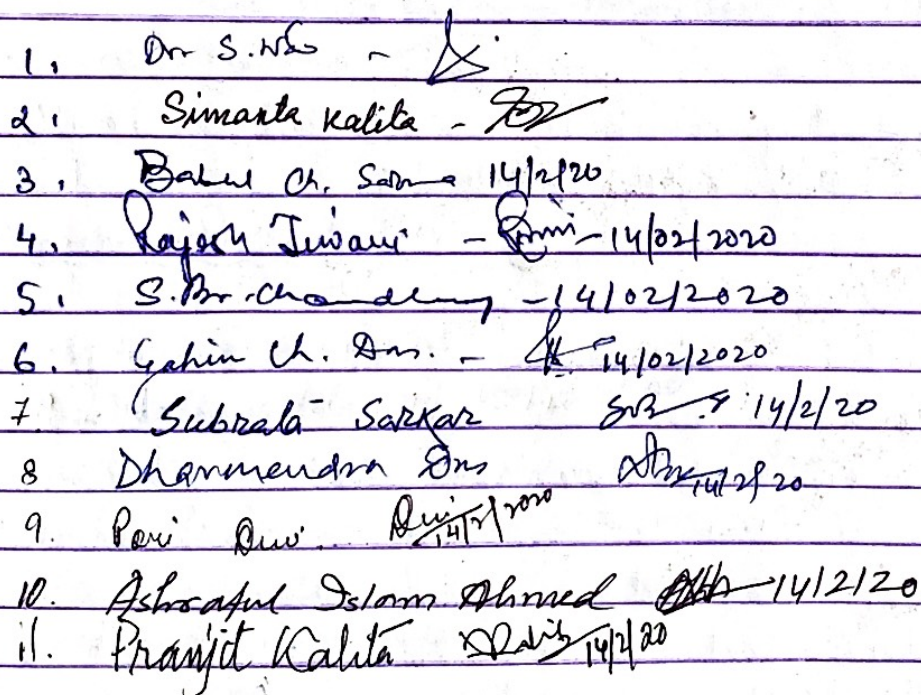 1. Dr S. -
2. Simanta Kalita -
3. Babul Ch. Sarma 14/2/20
4. Rajesh Tiwari - - 14/02/2020
5. S. Br. Choudhury - 14/02/2020
6. Gahin Ch. Das. - 14/02/2020
7. Subrata Sarkar 14/2/20
8 Dharmendra Das 14/2/20
9. Pari Devi. Devi 14/2/2020
10. Ashraful Islam Ahmed 14/2/20
11. Pranjit Kalita 14/2/20